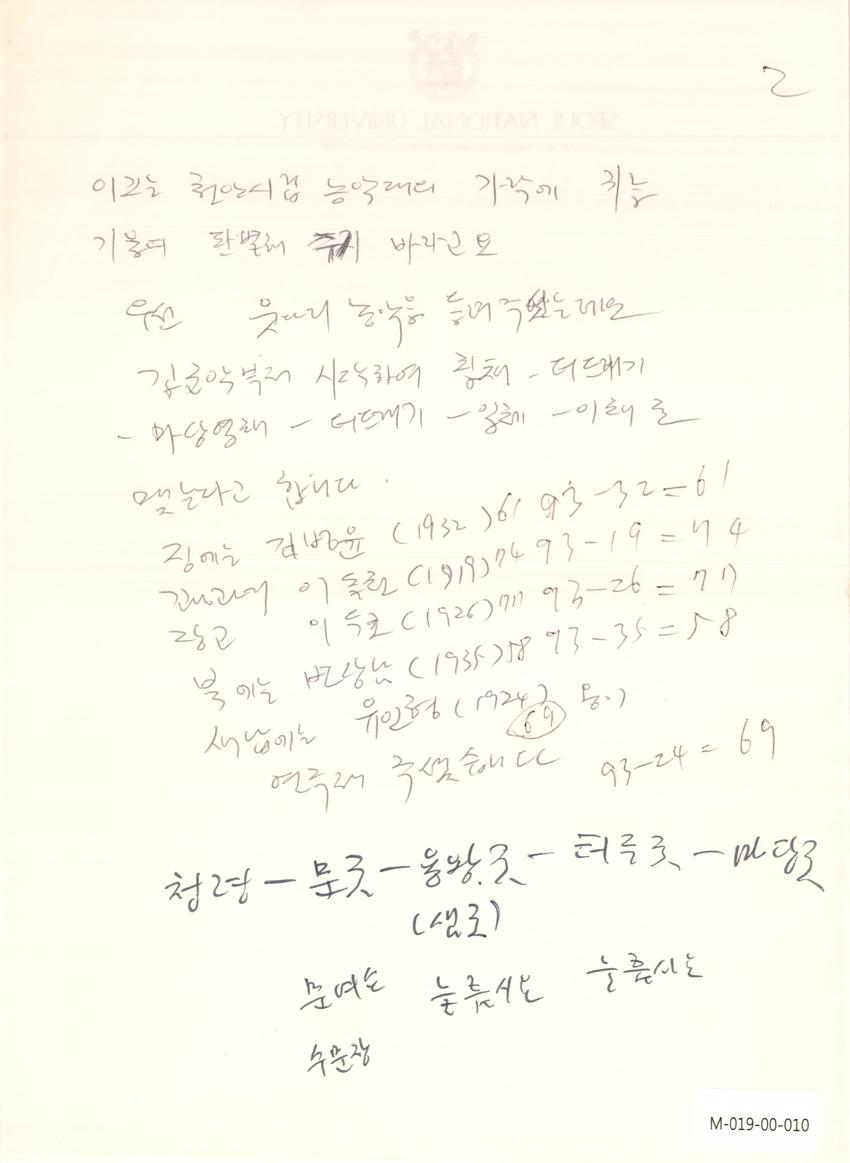 2
SEOUL NATIONAL UNIVERSITY
이고는 천안시립 농악대의 가락에 귀를
기울여 판별해 주시기 바라고요
우선 웃다리 농악을 들려주셨는데요
길군악부터 시작하여 칠채 - 더드래기
- 마당열채 - 더드래기 - 일채 - 이채로
맺는다고 합니다.
징에는 김병윤 (1932) 61 93-32=61
이돌천 (1919) 74 93-19=74
장고 이 (1926) 77 93-26=77
북에는 (1935) 58 93-35=58
새납에는 유인형 (1924) 69 등이
연주해 주셨습니다 93-24=69
청령 - 문굿 - 용왕굿 - 터주굿 - 마당굿
(샘굿)
문여소
수문장
M-019-00-010